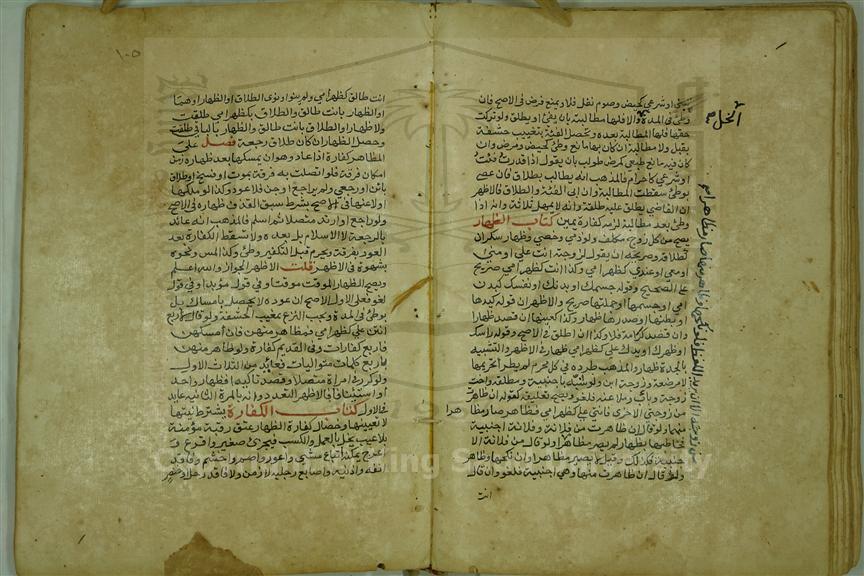 حسي او شرعي كحيض وصوم نفل فلا ويمنع فرض في الاصح فان
وطئ في المدة والا فلها مطالبة بان يفئ او يطلق ولو تركت
حقها فلها المطالبة بعده وتحصل الفئة بتغييب حشفة
بقبل ولا مطالبة ان كان بها مانع وطئ كحيض ومرض وان
كان فيه مانع طبعي كمرض طولب بان يقول اذا قدرت فئت
او شرعي كاحرام فالمذهب انه يطالب بطلاق فان عصى
بوطئ سقطت المطالبة وان ابى الفئة والطلاق فالاظهر
ان القاضي يطلق عليه طلقة وانه لا يمهل ثلاثة وانه اذا
وطئ بعد مطالبة لزمه كفارة يمين كتاب الظهار
يصح من كل زوج مكلف ولو ذمي وخصي وظهار سكران
كطلاقه وصريحه ان يقول لزوجته انت علي او مني
او معي او عندي كظهر امي وكذا انت كظهر امي صريح
على الصحيح وقوله جسمك او بدنك او نفسك كبدن
امي او جسمها او جملتها صريح والاظهر ان قوله كيدها
او بطنها او صدرها ظهار وكذا كعينها ان قصد ظهارا
وان قصد كرامة فلا وكذا ان اطلق في الاصح وقوله راسك
او ظهرك او يدك علي كظهر امي ظهار في الاظهر والتشبيه
بالجدة ظهار والمذهب طرده في كل محرم لم يطرأ تحريمها
لا مرضعة وزوجة ابن ولو شبه باجنبية ومطلقة واخت
زوجة وباب وملاعنة فلغو ويصح تعليقه كقوله ان ظاهرت
من زوجتي الاخرى فانت علي كظهر امي فظاهر صار مظاهرا
منهما ولو قال ان ظاهرت من فلانة وفلانة اجنبية
فخاطبها بظهار لم يصر مظاهرا ولو قال من فلانة الا
جنبية فكذلك وقيل لا يصير مظاهرا وان نكحها وظاهر
ولو قال ان ظاهرت منها وهي اجنبية فلغو وان قال
انت
من زوجته الا ان يريد اللفظ فلو نكحها وظاهر منها صار مظاهرا
انت طالق كظهر امي ولم ينو او نوى الطلاق او الظهار او هما
او الظهار بانت طالق والطلاق بكظهر امي طلقت
ولا ظهار او الطلاق بانت طالق والظهار بالباقي طلقت
وحصل الظهار ان كان طلاق رجعة فصل على
المظاهر كفارة اذا عاد وهو ان يمسكها بعد ظهاره زمن
امكان فرقة فلو اتصلت به فرقة بموت او فسخ او طلاق
بائن او رجعي ولم يراجع او جن فلا عود وكذا لو ملكها
او لاعنها في الاصح بشرط سبق القذف ظهاره في الاصح
ولو راجع او ارتد متصلا ثم اسلم فالمذهب انه عائد
بالرجعة لا الاسلام بل بعده ولا تسقط الكفارة بعد
العود بفرقة ويحرم قبل التكفير وطئ وكذا لمس ونحوه
بشهوة في الاظهر قلت الاظهر الجواز والله اعلم
ويصح الظهار الموقت موقتا وفي قول مؤبدا وفي قول
لغو فعلى الاول الاصح ان عوده لا يحصل بامساك بل
بوطئ في المدة ويجب النزع بمغيب الحشفة ولو قال لاربع
انتن علي كظهر امي فمظاهر منهن فان امسكهن
فاربع كفارات وفي القديم كفارة ولو ظاهر منهن
باربع كلمات متواليات فعائد من الثلاث الاول
ولو كرر في امراة متصلا وقصد تاكيدا فظهار واحد
او استئنافا فالاظهر التعدد وانه بالمرة الثانية عايد
في الاول كتاب الكفارة يشترط نيتها
لا تعيينها وخصال كفارة الظهار عتق رقبة مؤمنة
بلا عيب يخل بالعمل والكسب فيجزئ صغير واقرع و
اعرج يمكنه اتباع مشي واعور واصم واخشم وفاقد
انفه واذنيه واصابع رجليه لا زمن ولا فاقد رجل او خنصر